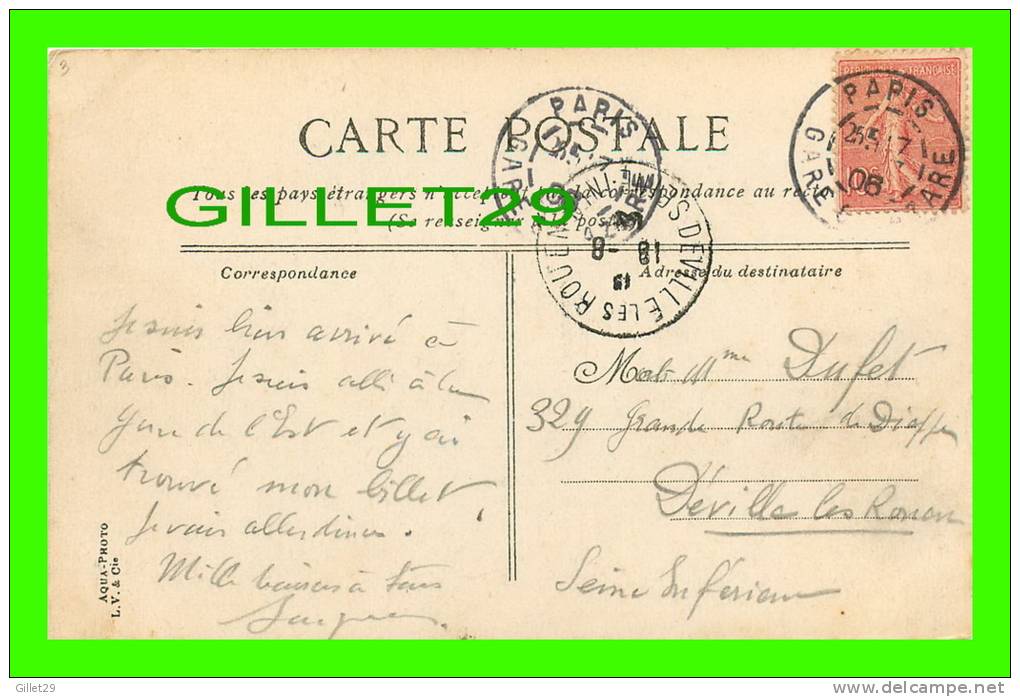 3
RÉPUBLIQUE FRANÇAISE
PARIS
GARE
25
7
06
PARIS
GARE
CARTE POSTALE
GILLET29
Tous les pays étrangers n'acceptent pas la correspondance au recto
(Se renseigner à la poste)
DEVILLE LES ROUEN
Correspondance
Adresse du destinataire
Je suis bien arrivé à
Paris. Je suis allé à la
gare de l'Est et y ai
trouvé mon billet
Je vais aller diner.
Mille baisers à tous
Jacques
M Mme Dufet
329 Grande Route de Dieppe
Déville les Rouen
Seine Inférieure
AQUA-PHOTO
L.V. & Cie
Gillet29
www.delcampe.net